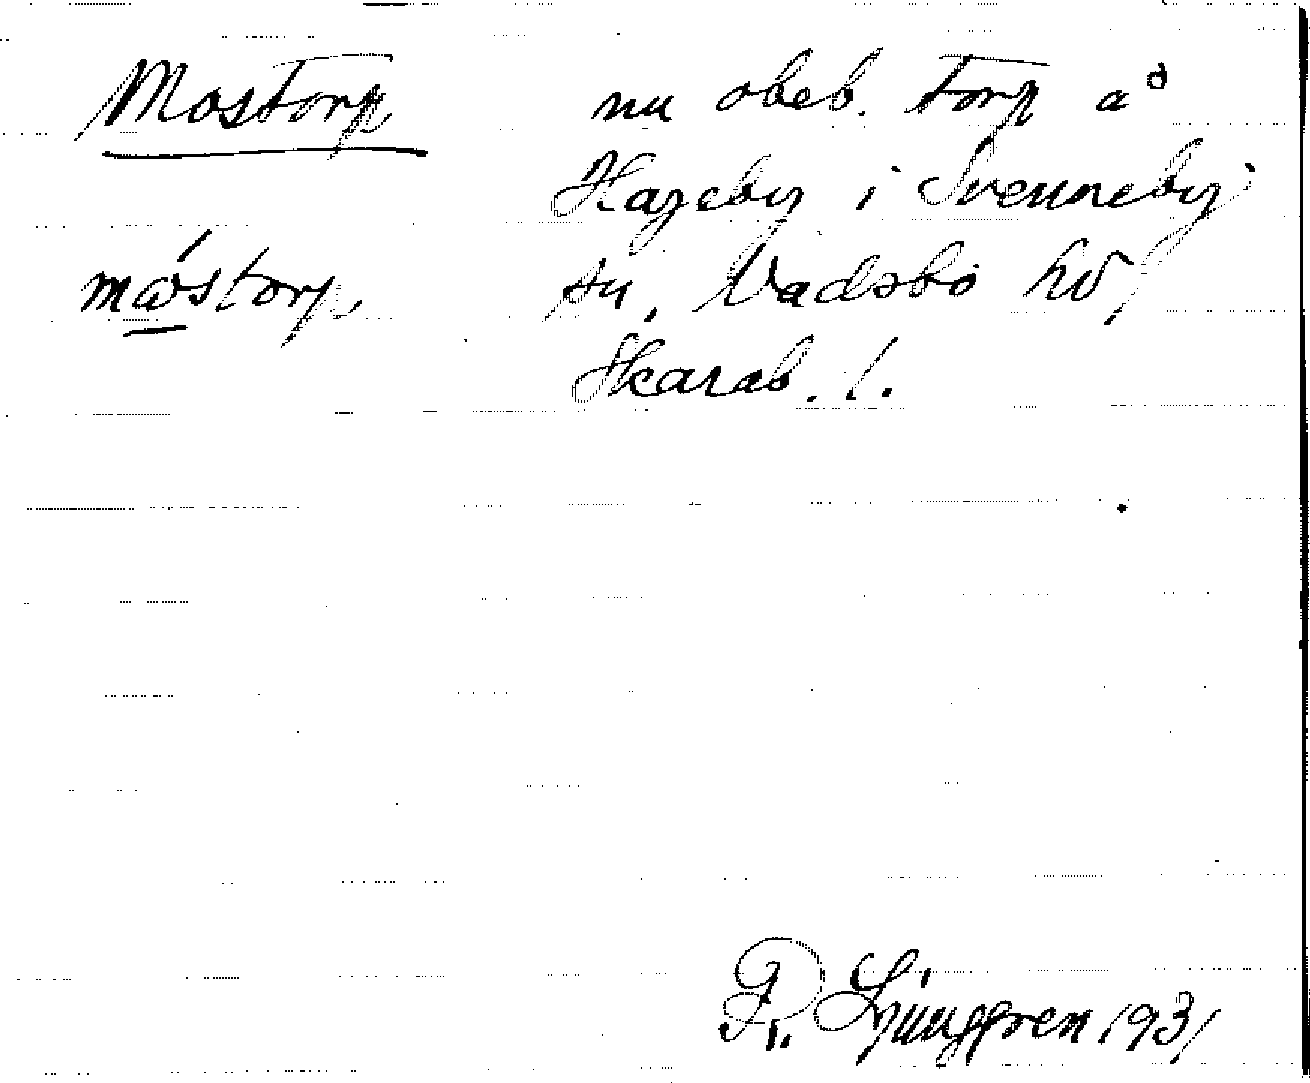 Mostorp
nu obeb. torp å
Hageby i Svenneby
móstorp,
sn, Vadsbo hd,
Skarab. l.
R. Ljunggren 1931